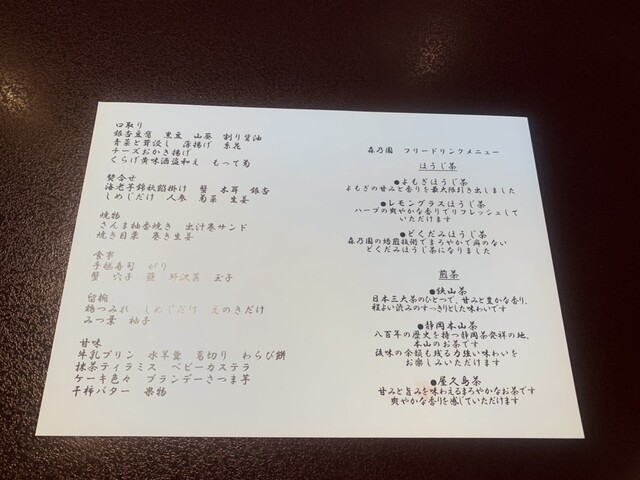 口取り
銀杏豆腐　黒豆　山葵　割り醤油
青菜と茸浸し　薄揚げ　糸花
チーズおかき揚げ
くらげ黄味酒盗和え　もって菊
焚合せ
海老芋錦秋餡掛け　蟹　木耳　銀杏
しめじだけ　人参　菊菜　生姜
焼物
さんま柚香焼き　出汁巻サンド
焼き目栗　巻き生姜
食事
手毬寿司　がり
蟹　穴子　野沢菜　玉子
留椀
鶏つみれ　しめじだけ　えのきだけ
みつ葉　柚子
甘味
牛乳プリン　水羊羹　葛切り　わらび餅
抹茶ティラミス　ベビーカステラ
ケーキ色々　ブランデーさつま芋
干柿バター　果物
森乃園　フリードリンクメニュー
ほうじ茶
●よもぎほうじ茶
よもぎの甘みと香りを最大限引き出しました
●レモングラスほうじ茶
ハーブの爽やかな香りでリフレッシュして
いただけます
●どくだみほうじ茶
森乃園の焙煎技術でまろやかで癖のない
どくだみほうじ茶になりました
煎茶
●狭山茶
日本三大茶のひとつで、甘みと豊かな香り、
程よい渋みのすっきりとした味わいです
●静岡本山茶
八百年の歴史を持つ静岡茶発祥の地、
本山のお茶です
後味の余韻も残る力強い味わいを
お楽しみいただけます
●屋久島茶
甘みと旨みを味わえるまろやかなお茶です
爽やかな香りを感じていただけます